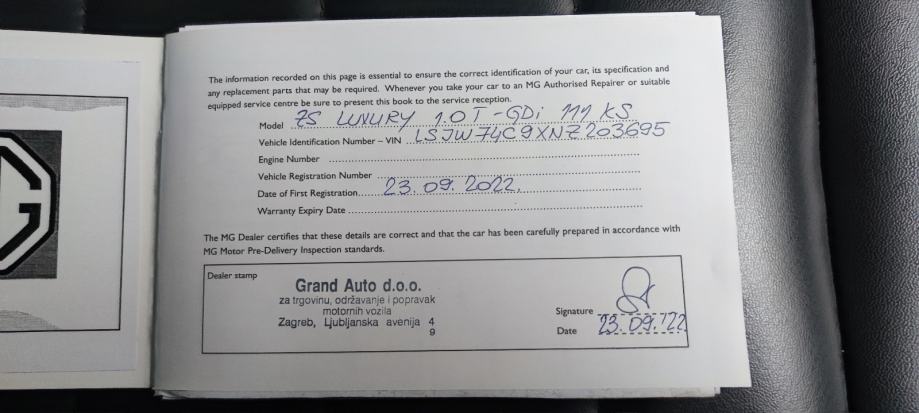 The information recorded on this page is essential to ensure the correct identification of your car, its specification and
any replacement parts that may be required. Whenever you take your car to an MG Authorised Repairer or suitable
equipped service centre be sure to present this book to the service reception.
Model ZS LUXURY 1.0T-GDi 111 KS
Vehicle Identification Number – VIN LSJW74C9XNZ203695
Engine Number
Vehicle Registration Number
Date of First Registration 23.09.2022.
Warranty Expiry Date
The MG Dealer certifies that these details are correct and that the car has been carefully prepared in accordance with
MG Motor Pre-Delivery Inspection standards.
Dealer stamp
Grand Auto d.o.o.
za trgovinu, održavanje i popravak
motornih vozila
Zagreb, Ljubljanska avenija 4
9
Signature
Date 23.09.'22